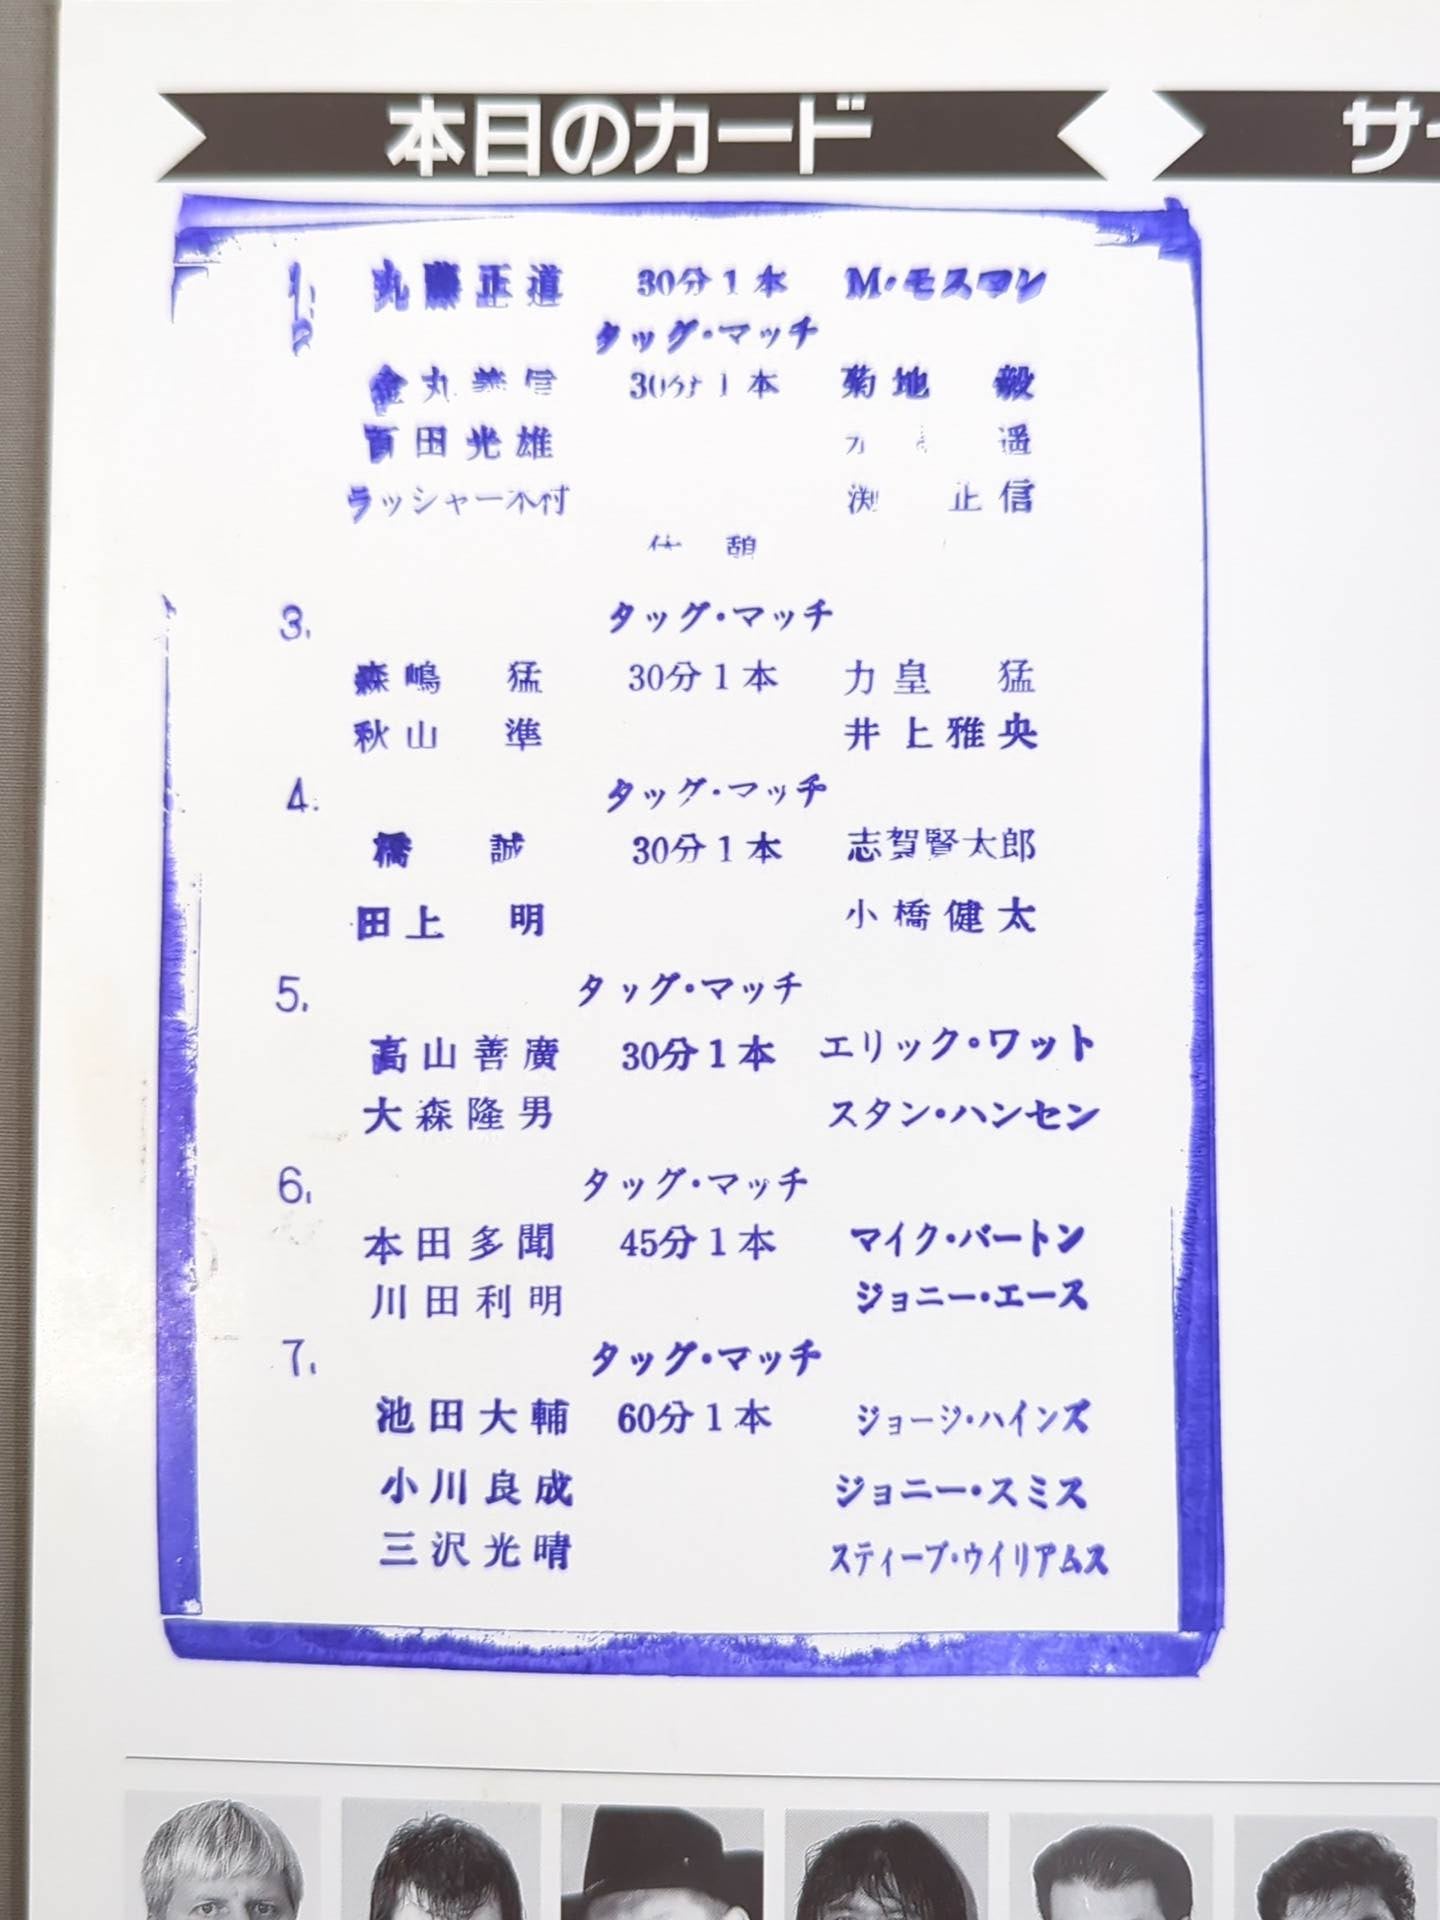 本日のカード
サ
1. 丸藤正道 30分1本 M・モスマン
タッグ・マッチ
金丸義信 30分1本 菊地 毅
百田光雄 遥
ラッシャー木村 渕 正信
休憩
3. タッグ・マッチ
森嶋 猛 30分1本 力皇 猛
秋山 準 井上雅央
4. タッグ・マッチ
橋 誠 30分1本 志賀賢太郎
田上 明 小橋健太
5. タッグ・マッチ
高山善廣 30分1本 エリック・ワット
大森隆男 スタン・ハンセン
6. タッグ・マッチ
本田多聞 45分1本 マイク・バートン
川田利明 ジョニー・エース
7. タッグ・マッチ
池田大輔 60分1本 ジョージ・ハインズ
小川良成 ジョニー・スミス
三沢光晴 スティーブ・ウイリアムス